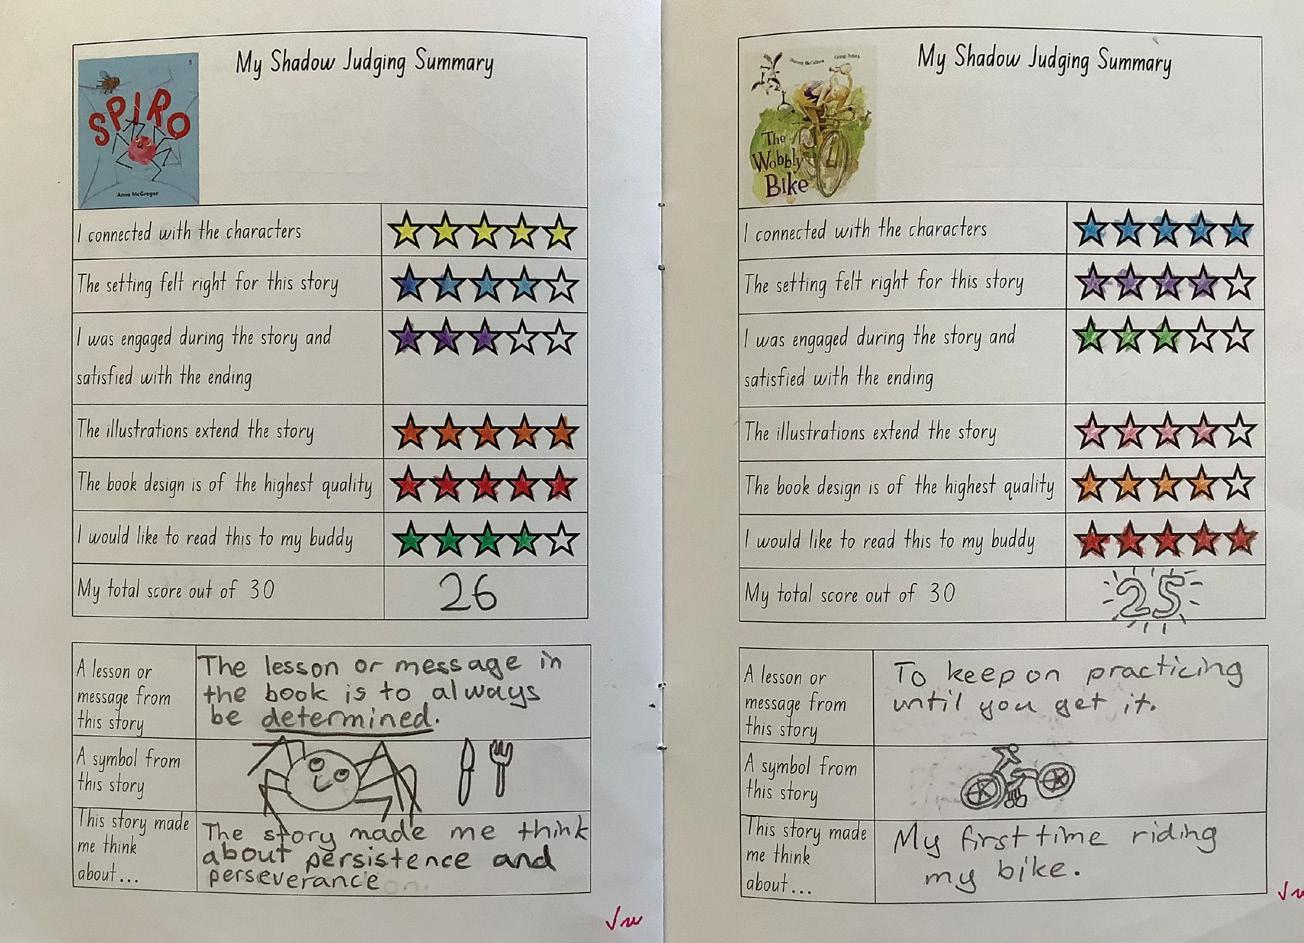 My Shadow Judging Summary
SPIRO
Anna McGregor
I connected with the characters
The setting felt right for this story
I was engaged during the story and
satisfied with the ending
The illustrations extend the story
The book design is of the highest quality
I would like to read this to my buddy
My total score out of 30
26
A lesson or
message from
this story
The lesson or message in
the book is to always
be determined.
A symbol from
this story
This story made
me think
about...
The story made me think
about persistence and
perseverance
My Shadow Judging Summary
The
Wobbly
Bike
I connected with the characters
The setting felt right for this story
I was engaged during the story and
satisfied with the ending
The illustrations extend the story
The book design is of the highest quality
I would like to read this to my buddy
My total score out of 30
25
A lesson or
message from
this story
To keep on practicing
until you get it.
A symbol from
this story
This story made
me think
about...
My first time riding
my bike.